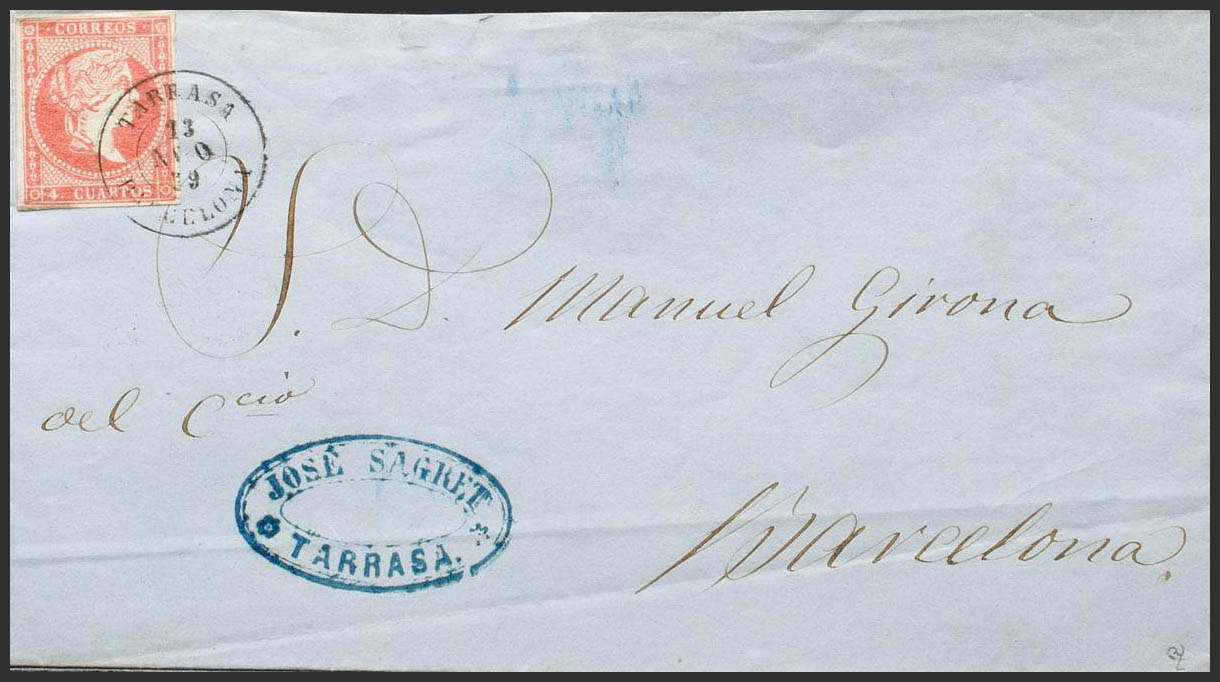 CORREOS
4 CUARTOS
TARRASA
13
AGO
59
BARCELONA
S. D. Manuel Girona
del Ccio
JOSÉ SAGRET
TARRASA.
Barcelona.